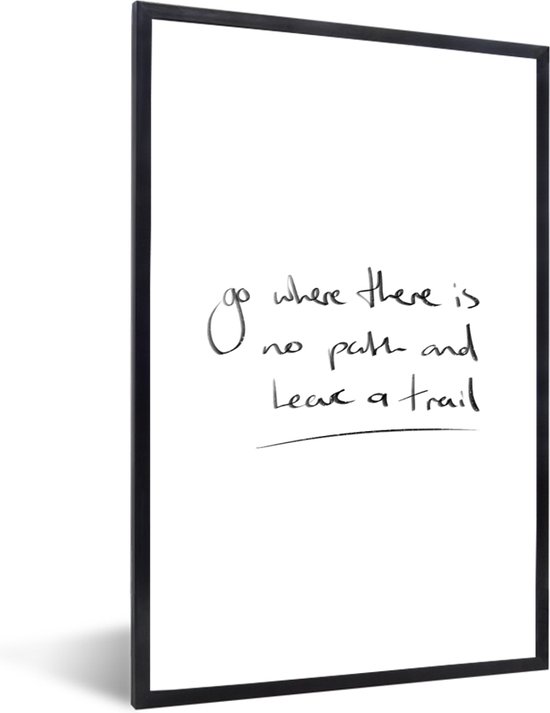 go where there is
no path and
leave a trail